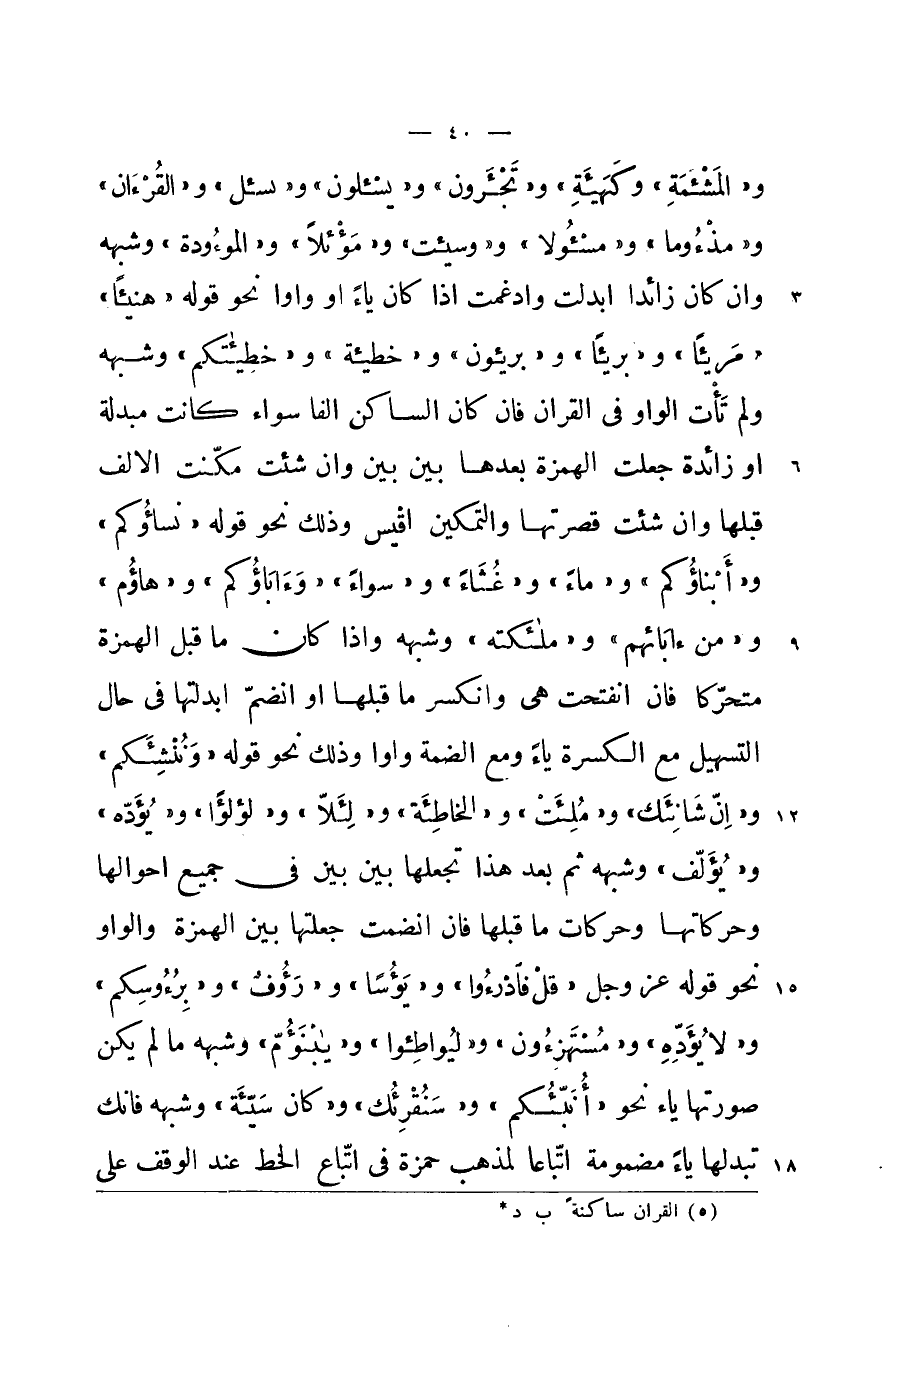 — ٤٠ —
و« المَشْئَمَةِ » و كَهَيْئَةِ » و« تَجْئَرون » و« يسْئلون » و« نسئل » و « القُرْءَان »
و« مذْءُوما » و« مسْئُولا » و« وسيئت » و« مَؤْئلاً » و« الموءُودة » وشبهه
٣ وان كان زائدا ابدلت وادغمت اذا كان ياءً او واوا نحو قوله « هنيئًا »
« مَريئًا » و « بريئًا » و « بريئون » و « خطيئة » و « خطِيئٰتكم » وشبهه
ولم تَأْت الواو فى القران فان كان الساكن الفا سواء كانت مبدلة
٦ او زائدة جعلت الهمزة بعدها بين بين وان شئت مكّنت الالف
قبلها وان شئت قصرتها والتمكين اقيس وذلك نحو قوله « نساؤُكم »
و« أَبْناؤُكم » و « ماءً » و « غُثَاءً » و « سواءً » « وَءَابَاؤُكم » و « هاؤُم »
٩ و « من ءابَائهم » و « ملٰئكته » وشبهه واذا كان ما قبل الهمزة
متحرّكا فان انفتحت هى وانكسر ما قبلها او انضمّ ابدلتها فى حال
التسهيل مع الكسرة ياءً ومع الضمة واوا وذلك نحو قوله « وَنُنْشِئَكم »
١٢ و« اِنّ شَانِئَك » و« مُلِئَتْ » و « الخاطِئَة » و« لِئَلاّ » و« لؤلؤًا » و« يُؤَدّه »
و« يُؤَلّف » وشبهه ثم بعد هذا تجعلها بين بين فى جميع احوالها
وحركاتها وحركات ما قبلها فان انضمت جعلتها بين الهمزة والواو
١٥ نحو قوله عز وجل « قلْ فَادْرءُوا » و « يَؤُسًا » و « رَؤُفٌ » و « بِرُءُوسِكم »
و« لا يُؤَدّهِ » و« مُسْتَهزِءُون » و« ليُواطِئوا » و« يٰبْنَؤُمّ » وشبهه ما لم يكن
صورتها ياء نحو « أُنَبّئُكم » و« سَنُقْرِئُك » و« كان سَيّئَة » وشبهه فانك
١٨ تبدلها ياءً مضمومة اتّباعا لمذهب حمزة فى اتّباع الخط عند الوقف على
(٥) القران ساكنةً ب د*